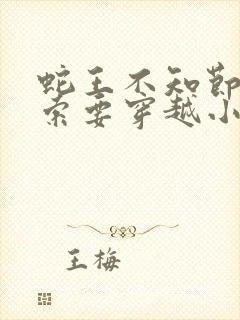 蛇王不知節
索要穿越小
王梅